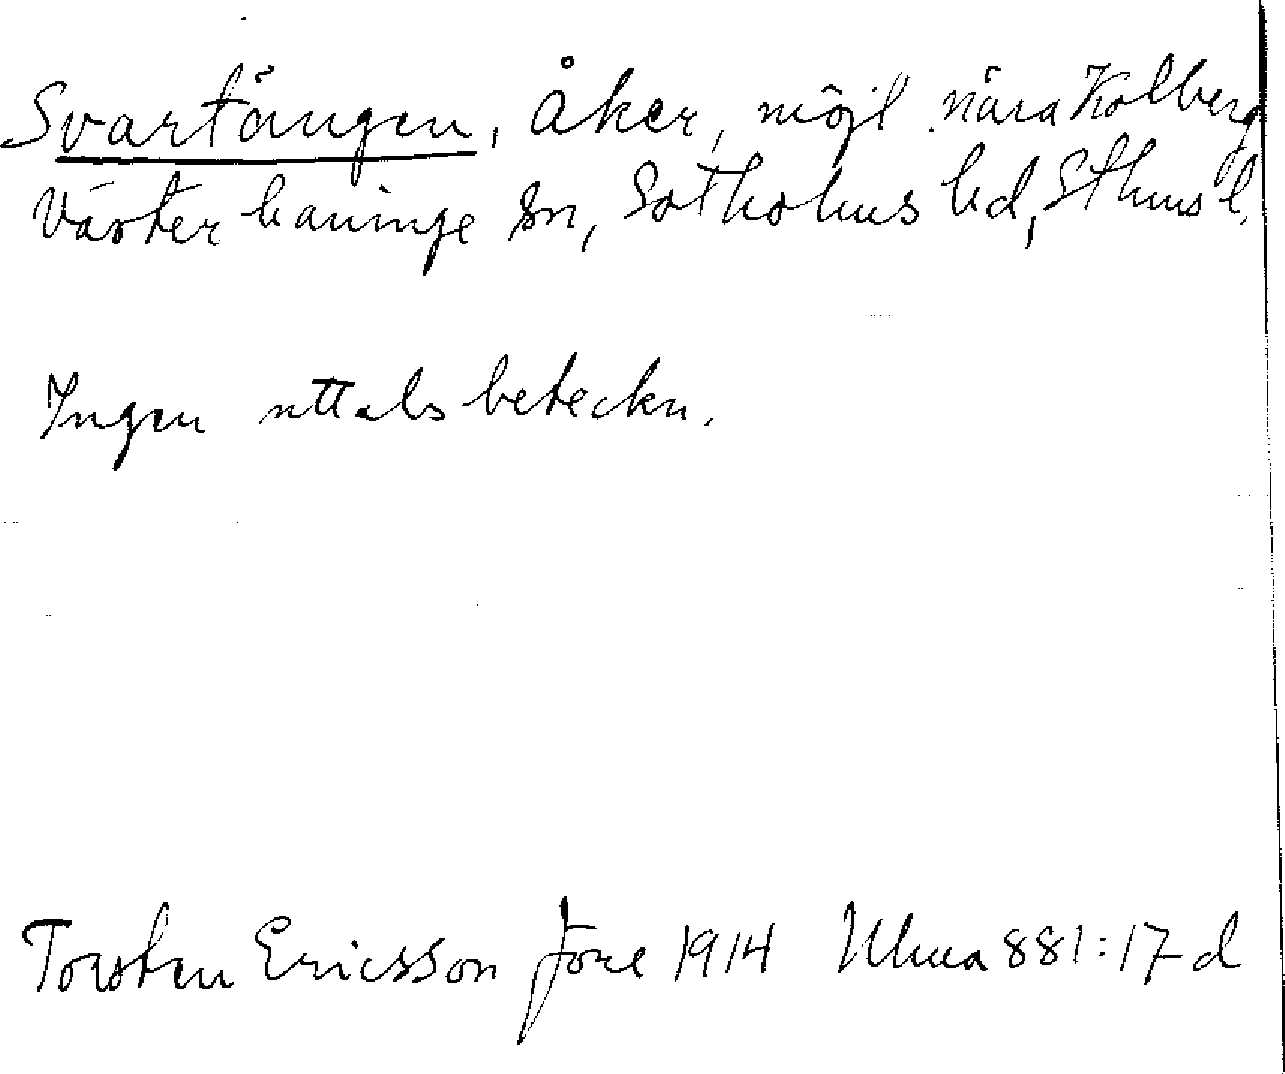 Svartängen, åker, möjl. nära Kolberg
Västerhaninge sn, Sotholms hd, Sthms l.
Ingen uttalsbeteckn.
Torsten Ericsson före 1914 Ulma 881:17 d